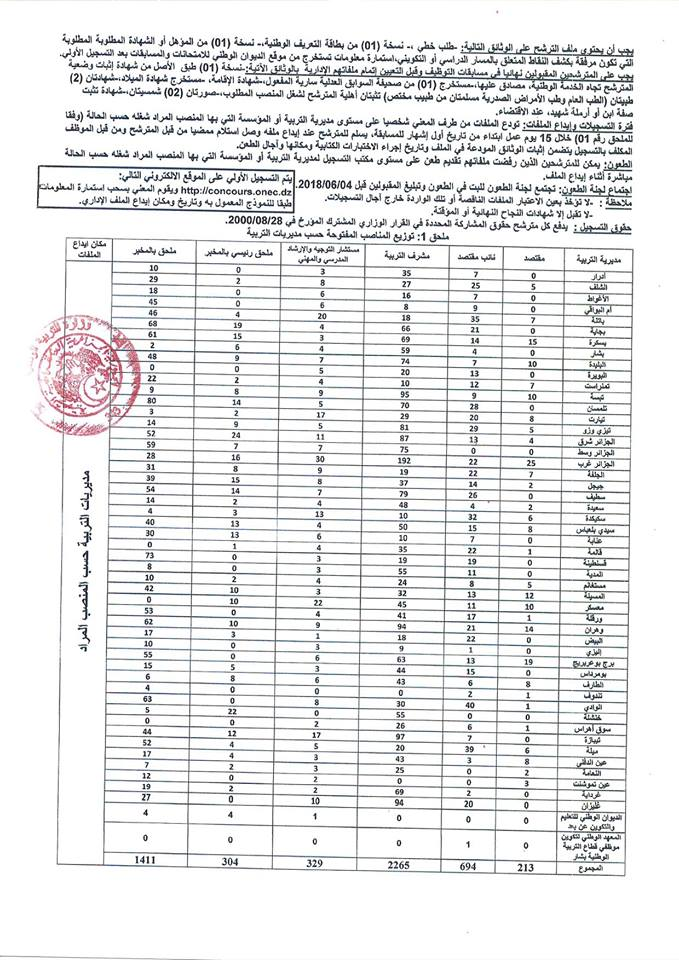 يجب أن يحتوي ملف الترشح على الوثائق التالية: -طلب خطي ،- نسخة (01) من بطاقة التعريف الوطنية،- نسخة (01) من المؤهل أو الشهادة المطلوبة المطلوبة
التي تكون مرفقة بكشف النقاط المتعلق بالمسار الدراسي أو التكويني،استمارة معلومات تستخرج من موقع الديوان الوطني للامتحانات والمسابقات بعد التسجيل الأولي.
يجب على المترشحين المقبولين نهائيا في مسابقات التوظيف وقبل التعيين إتمام ملفاتهم الإدارية بالوثائق الآتية:-نسخة (01) طبق الأصل من شهادة إثبات وضعية
المترشح تجاه الخدمة الوطنية، مصادق عليها،-مستخرج (01) من صحيفة السوابق العدلية سارية المفعول،-شهادة الإقامة، -مستخرج شهادة الميلاد،-شهادتان (2)
طبيتان (الطب العام وطب الأمراض الصدرية مسلمتان من طبيب مختص) تثبتان أهلية المترشح لشغل المنصب المطلوب،-صورتان (02) شمسيتان،-شهادة تثبت
صفة ابن أو أرملة شهيد، عند الاقتضاء.
فترة التسجيلات وإيداع الملفات: تودع الملفات من طرف المعني شخصيا على مستوى مديرية التربية أو المؤسسة التي بها المنصب المراد شغله حسب الحالة (وفقا
للملحق رقم 01) خلال 15 يوم عمل ابتداء من تاريخ أول إشهار للمسابقة، يسلم للمترشح عند إيداع ملفه وصل استلام ممضيا من قبل المترشح ومن قبل الموظف
المكلف بالتسجيل يتضمن إثبات الوثائق المودعة في الملف وتاريخ إجراء الاختبارات الكتابية ومكانها وآجال الطعن.
الطعون: يمكن للمترشحين الذين رفضت ملفاتهم تقديم طعن على مستوى مكتب التسجيل لمديرية التربية أو المؤسسة التي بها المنصب المراد شغله حسب الحالة
مباشرة أثناء إيداع الملف.
اجتماع لجنة الطعون: تجتمع لجنة الطعون للبت في الطعون وتبليغ المقبولين قبل 2018/06/04.
ملاحظة : -لا تؤخذ بعين الاعتبار الملفات الناقصة أو تلك الواردة خارج آجال التسجيلات.
-لا تقبل إلا شهادات النجاح النهائية أو المؤقتة.
يتم التسجيل الأولي على الموقع الالكتروني التالي:
http://concours.onec.dz ويقوم المعني بسحب استمارة المعلومات
طبقا للنموذج المعمول به وتاريخ ومكان إيداع الملف الإداري.
حقوق التسجيل : يدفع كل مترشح حقوق المشاركة المحددة في القرار الوزاري المشترك المؤرخ في 2000/08/28.
ملحق 1: توزيع المناصب المفتوحة حسب مديريات التربية
مديرية التربية مقتصد نائب مقتصد مشرف التربية مستشار التوجيه والإرشاد المدرسي والمهني ملحق رئيسي بالمخبر ملحق بالمخبر مكان ايداع الملفات
أدرار 0 7 35 3 0 10
الشلف 5 25 27 8 2 29
الأغواط 0 7 16 6 0 18
أم البواقي 0 9 8 6 0 45
باتنة 7 35 18 20 4 46
بجاية 0 21 66 4 19 68
بسكرة 15 14 69 3 15 61
بشار 0 4 59 4 6 2
البليدة 10 7 74 7 9 48
البويرة 0 13 20 5 0 0
تمنراست 7 12 10 4 2 22
تبسة 10 9 95 9 8 9
تلمسان 0 28 70 5 14 80
تيارت 8 20 29 17 2 3
تيزي وزو 5 29 81 5 9 14
الجزائر شرق 4 13 87 11 24 52
الجزائر وسط 0 0 75 7 7 59
الجزائر غرب 25 22 192 30 16 28
الجلفة 7 22 19 9 8 31
جيجل 2 14 37 8 15 39
سطيف 0 26 79 7 14 54
سعيدة 2 4 48 4 2 14
سكيكدة 6 32 10 13 3 4
سيدي بلعباس 8 15 50 4 13 40
عنابة 0 7 10 6 13 30
قالمة 1 22 35 4 1 0
قسنطينة 0 19 19 3 0 73
المدية 0 11 55 3 0 8
مستغانم 5 8 24 4 2 10
المسيلة 12 13 32 3 10 42
معسكر 10 11 45 22 10 0
ورقلة 1 17 41 4 0 53
وهران 14 21 94 9 10 62
البيض 0 22 18 1 3 17
إليزي 1 3 9 0 0 10
برج بوعريريج 19 13 63 6 0 55
بومرداس 0 15 44 3 5 15
الطارف 8 6 43 6 8 6
تندوف 1 2 1 0 0 4
الوادي 1 40 30 8 0 63
خنشلة 0 0 55 0 22 5
سوق أهراس 1 6 26 2 0 0
تيبازة 0 7 97 17 12 44
ميلة 6 39 20 5 4 52
عين الدفلى 8 3 43 3 4 17
النعامة 2 0 25 3 2 7
عين تموشنت 3 0 0 2 0 12
غرداية 0 2 69 2 2 19
غليزان 0 20 94 10 0 27
الديوان الوطني للتعليم والتكوين عن بعد 0 0 0 1 4 4
المعهد الوطني لتكوين موظفي قطاع التربية الوطنية بشار 0 1 0 0 0 0
المجموع 213 694 2265 329 304 1411
مديريات التربية حسب المنصب المراد